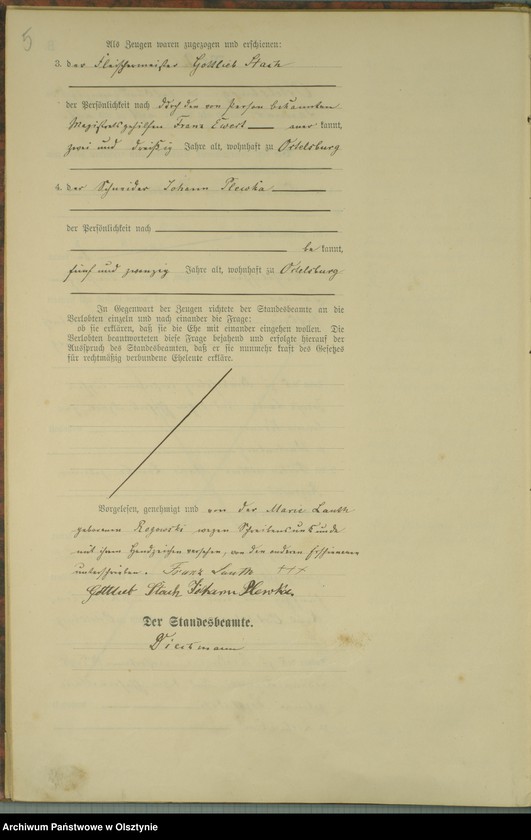 5
Als Zeugen waren zugezogen und erschienen:
3. der Fleischermeister Gottlieb Stach
der Persönlichkeit nach durch den von Person bekannten
Magistratsgehilfen Franz Ewert anerkannt,
zwei und dreißig Jahre alt, wohnhaft zu Ortelsburg
4. der Schneider Johann Plewka
der Persönlichkeit nach
bekannt,
fünf und zwanzig Jahre alt, wohnhaft zu Ortelsburg
In Gegenwart der Zeugen richtete der Standesbeamte an die
Verlobten einzeln und nach einander die Frage:
ob sie erklären, daß sie die Ehe mit einander eingehen wollen. Die
Verlobten beantworteten diese Frage bejahend und erfolgte hierauf der
Ausspruch des Standesbeamten, daß er sie nunmehr kraft des Gesetzes
für rechtmäßig verbundene Eheleute erkläre.
Vorgelesen, genehmigt und von der Marie
geborenen wegen Schreibensunkunde
mit ihrem Handzeichen versehen, von den anderen Erschienenen
unterschrieben. Franz +++
Gottlieb Stach Johann Plewka
Der Standesbeamte.
Archiwum Państwowe w Olsztynie